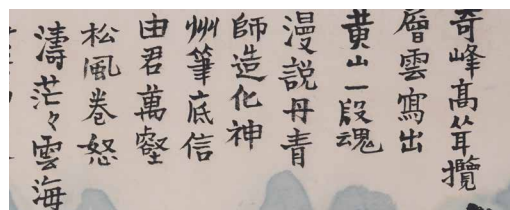 奇峰高耸攬
層雲寫出
黄山一段魂
漫說丹青
師造化神
州筆底信
由君萬壑
松風卷怒
濤茫々雲海